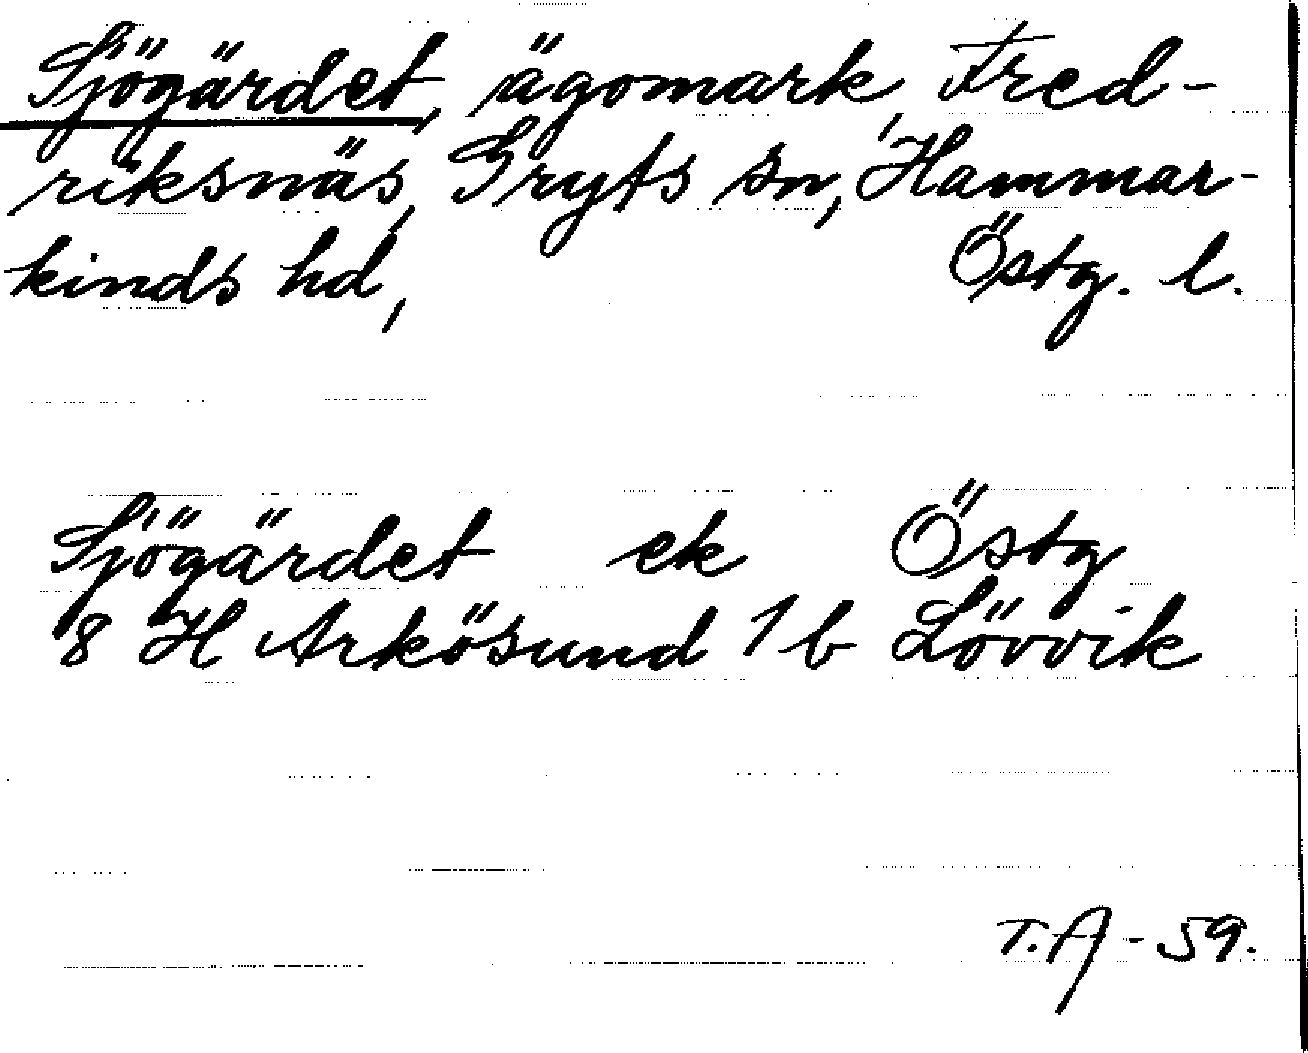 Sjögärdet, ägomark, Fred-
riksnäs, Gryts sn, Hammar-
kinds hd, Östg. l.
Sjögärdet ek Östg
8 H Arkösund 1 b Lövvik
T.A - 59.